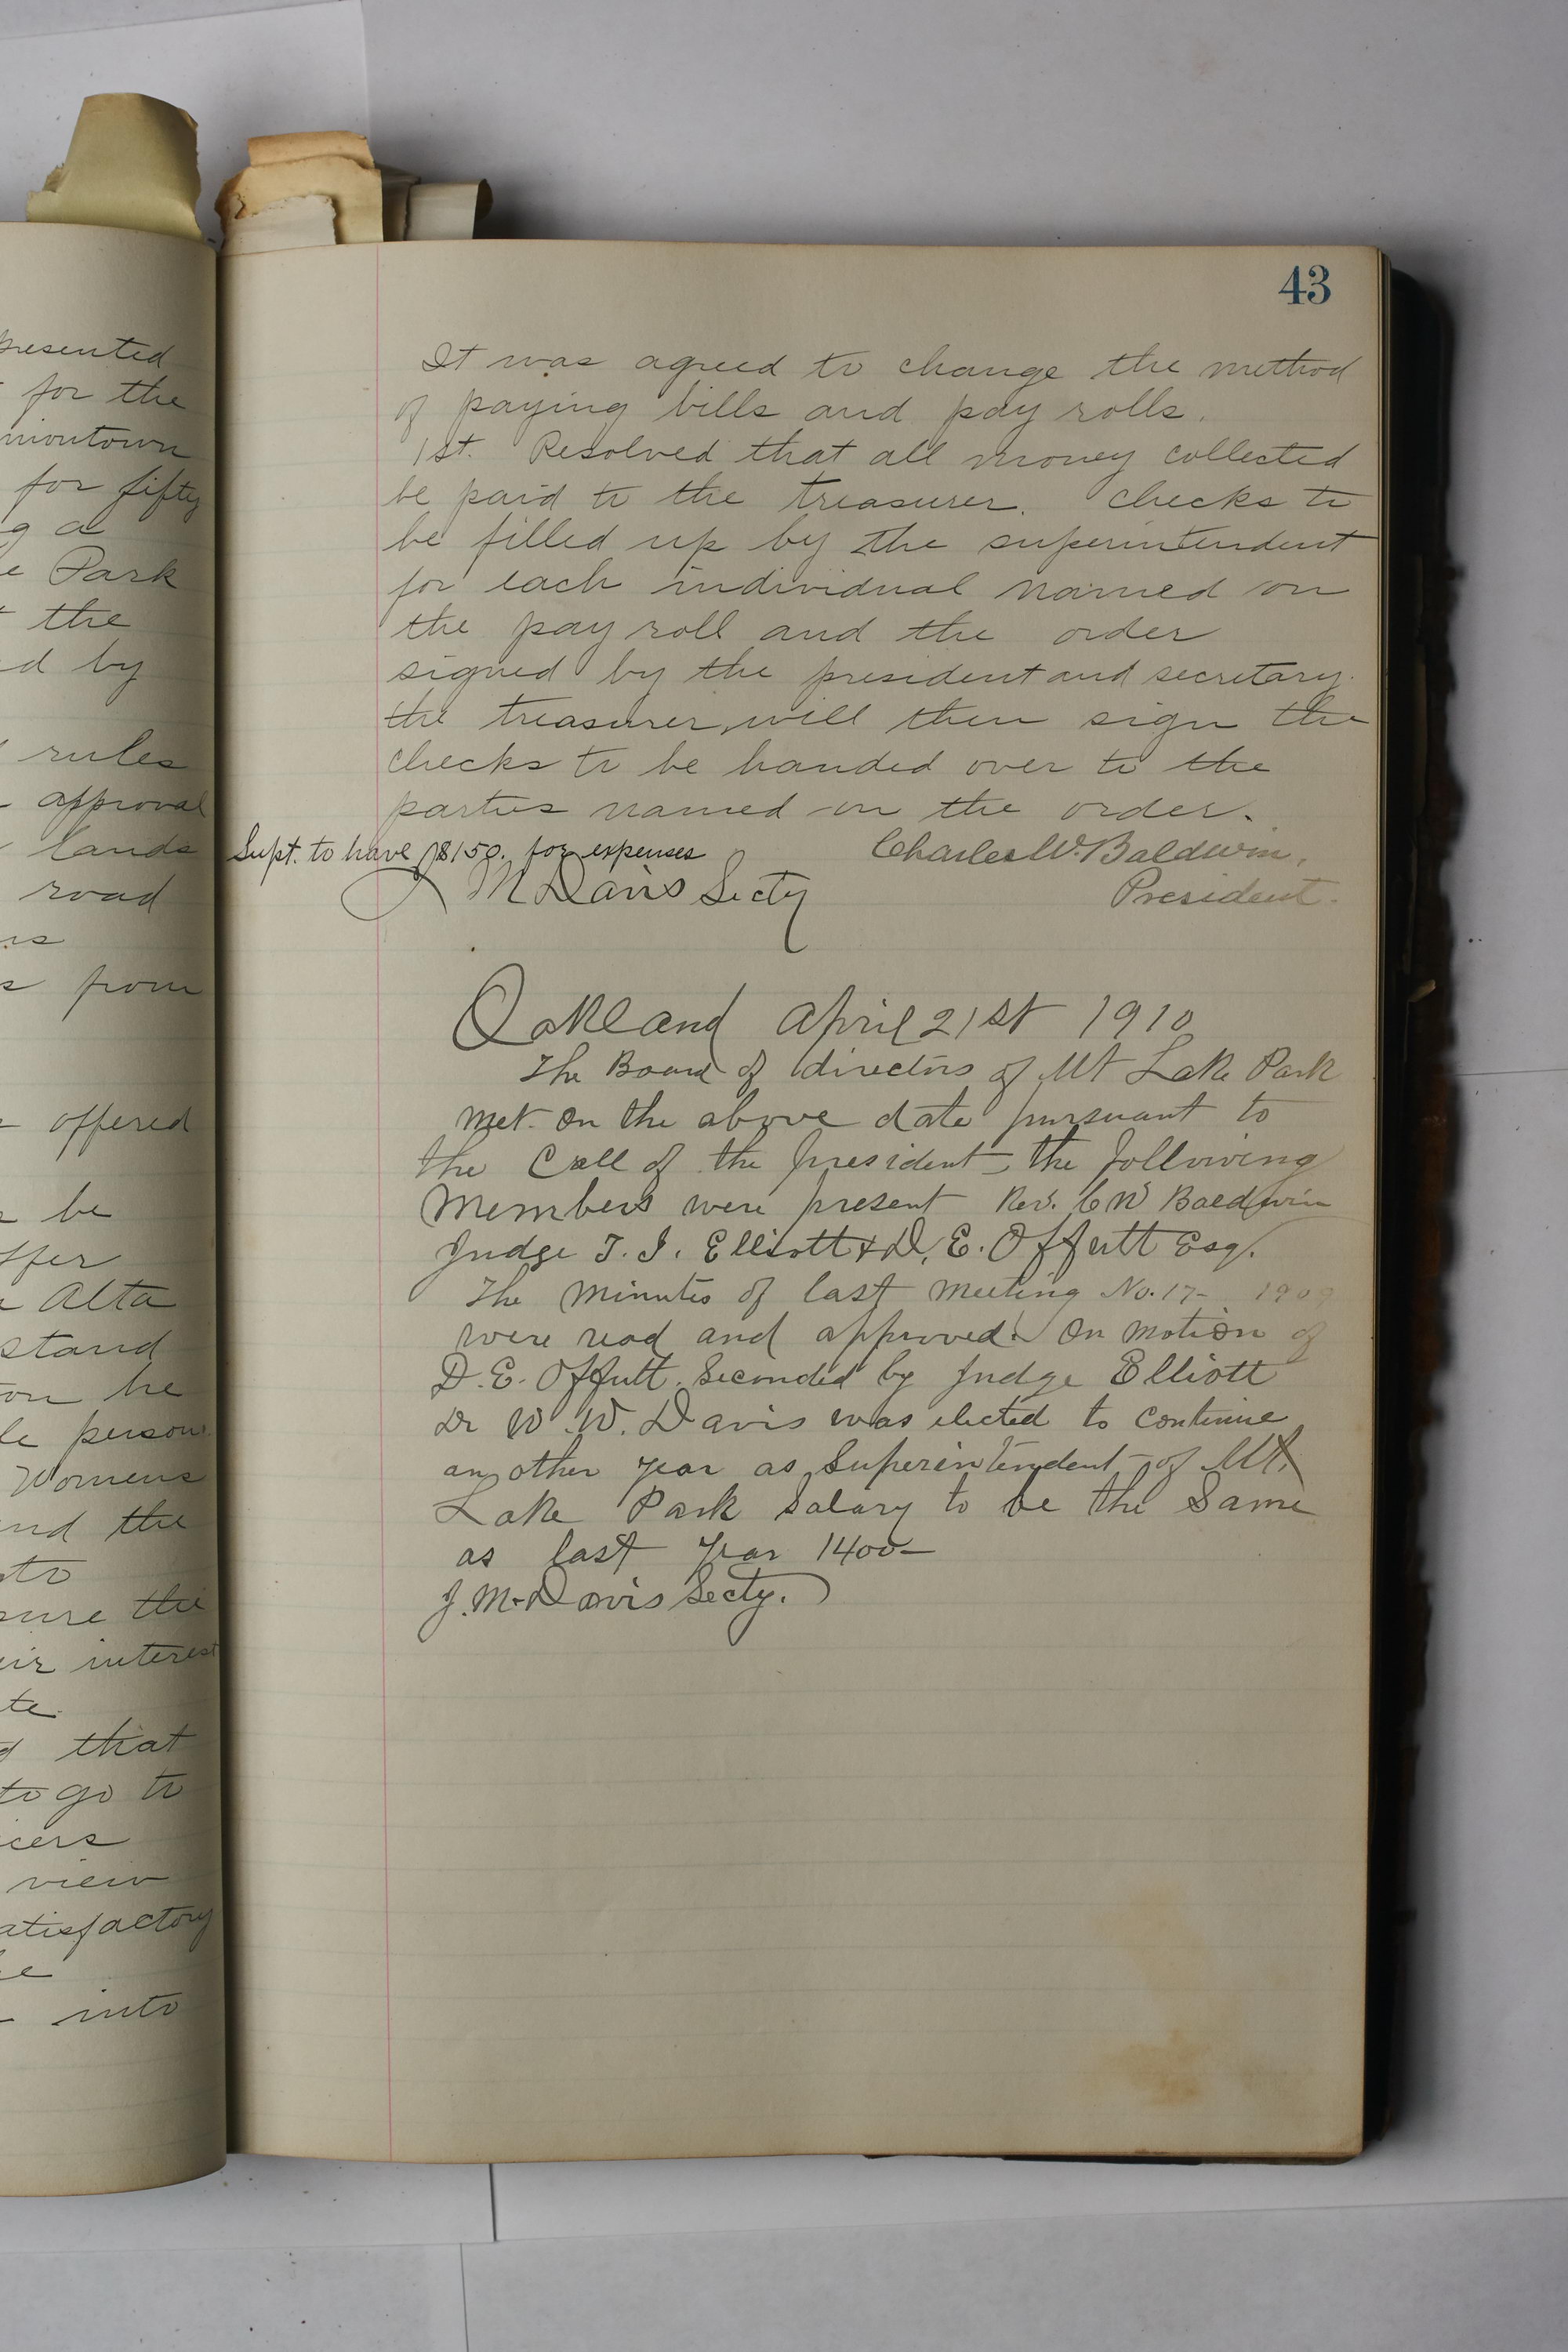 presented
for the
niontown
for fifty
g a
e Park
t the
d by
rules
approval
lands
road
is
s from
offered
be
ffer
Alta
stand
on he
le person
Womens
and the
to
sure the
eir interest
te.
d that
to go to
icers
view
atisfactory
into
43
It was agreed to change the method
of paying bills and pay rolls.
1st. Resolved that all money collected
be paid to the treasurer. Checks to
be filled up by the superintendent
for each individual named on
the pay roll and the order
signed by the president and secretary.
the treasurer, will then sign the
checks to be handed over to the
parties named on the order.
Supt. to have $150. for expenses
Charles W. Baldwin,
J M Davis Secty
President.
Oakland April 21st 1910
The Board of directors of Mt Lake Park
met on the above date pursuant to
the Call of the president - the following
Members were present Rev. C W Baldwin
Judge T. J. Elliott & D. E. Offutt Esq.
The minutes of last meeting No. 17- 1909
were read and approved. On motion of
D. E. Offutt. Seconded by Judge Elliott
Dr W. W. Davis was elected to continue
another year as Superintendent - of Mt.
Lake Park Salary to be the Same
as last year 1400-
J. M. Davis Secty.